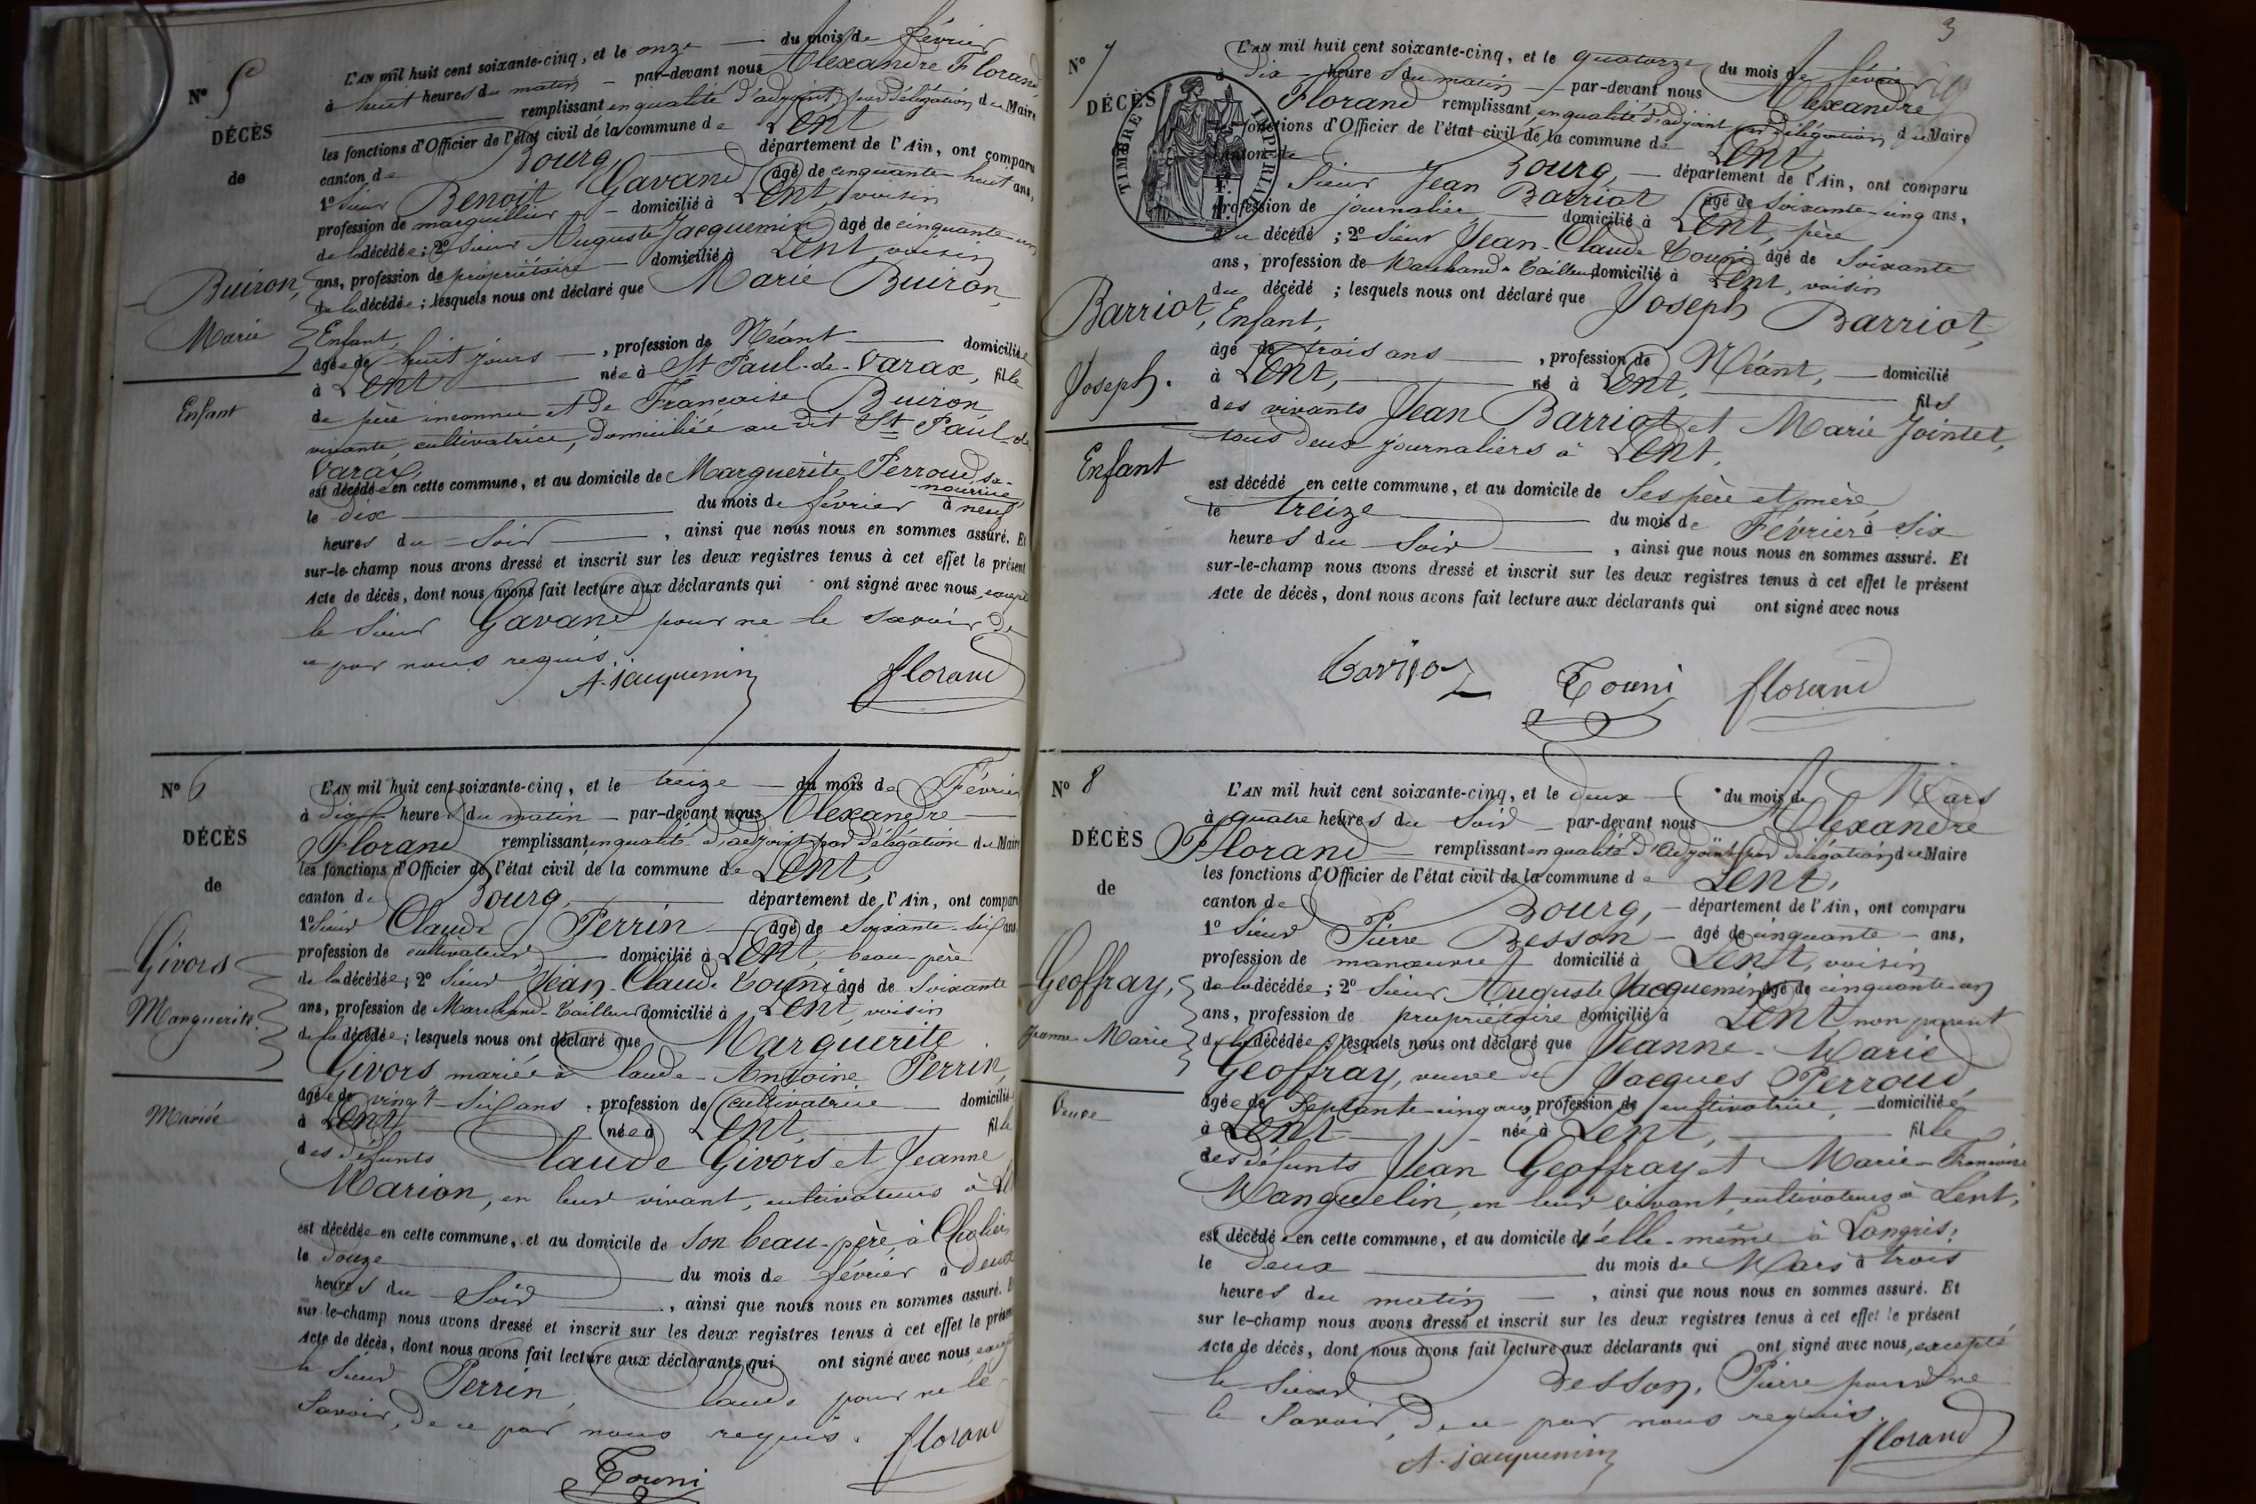 N° 5
DÉCÈS
de
Buiron,
Marie
Enfant
L'AN mil huit cent soixante-cinq, et le onze du mois de février
à huit heures du matin par-devant nous Alexandre Florand
remplissant en qualité d'adjoint par délégation du Maire
les fonctions d'Officier de l'état civil de la commune de Lent
canton de Bourg, département de l'Ain, ont comparu
1° Sieur Benoit Gavand âgé de cinquante-huit ans,
profession de marguillier domicilié à Lent, voisin
de la décédée ; 2° Sieur Auguste Jacquemin âgé de cinquante-un
ans, profession de propriétaire domicilié à Lent voisin
de la décédée ; lesquels nous ont déclaré que Marie Buiron,
Enfant,
âgée de huit jours , profession de Néant domiciliée
à Lent née à St Paul-de-Varax, fille
de père inconnu et de Françoise Buiron
vivante, cultivatrice, domiciliée au dit St Paul-de
Varax,
est décédée en cette commune, et au domicile de Marguerite Perroud, sa
nourrice,
le dix du mois de février à neuf
heures du soir , ainsi que nous nous en sommes assuré. Et
sur-le-champ nous avons dressé et inscrit sur les deux registres tenus à cet effet le présent
Acte de décès, dont nous avons fait lecture aux déclarants qui ont signé avec nous, excepté
le Sieur Gavand pour ne le savoir de
ce par nous requis.
A. jacquemin florand
N° 6
DÉCÈS
de
Givors
Marguerite
Mariée
L'AN mil huit cent soixante-cinq, et le treize du mois de Février
à dix heures du matin par-devant nous Alexandre
Florand remplissant en qualité d'adjoint par délégation du Maire
les fonctions d'Officier de l'état civil de la commune de Lent,
canton de Bourg, département de l'Ain, ont comparu
1° Sieur Claude Perrin âgé de soixante-six ans
profession de cultivateur domicilié à Lent, beau-père
de la décédée ; 2° Sieur Jean-Claude Touni âgé de soixante
ans, profession de Marchand-Tailleur domicilié à Lent, voisin
de la décédée ; lesquels nous ont déclaré que Marguerite
Givors mariée à Claude-Antoine Perrin,
âgée de vingt-six ans , profession de cultivatrice domiciliée
à Lent née à Lent, fille
des défunts Claude Givors et Jeanne
Marion, en leur vivant, cultivateurs à
est décédée en cette commune, et au domicile de son beau-père, à
le douze du mois de février à deux
heures du soir , ainsi que nous nous en sommes assuré. Et
sur le-champ nous avons dressé et inscrit sur les deux registres tenus à cet effet le présent
Acte de décès, dont nous avons fait lecture aux déclarants qui ont signé avec nous, excepté
le Sieur Perrin, Claude pour ne le
savoir, de ce par nous requis. florand
Touni
3
N° 7
DÉCÈS
TIMBRE IMPÉRIAL
Barriot,
Joseph.
Enfant
L'AN mil huit cent soixante-cinq, et le quatorze du mois de février
à dix heures du matin par-devant nous Alexandre
Florand remplissant en qualité d'adjoint par délégation du Maire
les fonctions d'Officier de l'état civil de la commune de Lent,
canton de Bourg, département de l'Ain, ont comparu
Sieur Jean Barriot âgé de soixante-cinq ans,
profession de journalier domicilié à Lent, père
du décédé ; 2° Sieur Jean-Claude Touni âgé de soixante
ans, profession de Marchand-Tailleur domicilié à Lent, voisin
du décédé ; lesquels nous ont déclaré que Joseph Barriot,
Enfant,
âgé de trois ans , profession de Néant, domicilié
à Lent, né à Lent, fils
des vivants Jean Barriot et Marie Jointet,
tous deux journaliers à Lent,
est décédé en cette commune, et au domicile de ses père et mère,
le treize du mois de Février à six
heures du soir , ainsi que nous nous en sommes assuré. Et
sur-le-champ nous avons dressé et inscrit sur les deux registres tenus à cet effet le présent
Acte de décès, dont nous avons fait lecture aux déclarants qui ont signé avec nous
Touni florand
N° 8
DÉCÈS
de
Geoffray,
Jeanne-Marie
Veuve
L'AN mil huit cent soixante-cinq, et le deux du mois de Mars
à quatre heures du soir par-devant nous Alexandre
Florand remplissant en qualité d'adjoint par délégation du Maire
les fonctions d'Officier de l'état civil de la commune de Lent,
canton de Bourg, département de l'Ain, ont comparu
1° Sieur Pierre Besson âgé de cinquante ans,
profession de manœuvre domicilié à Lent, voisin
de la décédée ; 2° Sieur Auguste Jacquemin âgé de cinquante-un
ans, profession de propriétaire domicilié à Lent non parent
de la décédée ; lesquels nous ont déclaré que Jeanne-Marie
Geoffray, veuve de Jacques Perroud,
âgée de septante-cinq ans, profession de cultivatrice, domiciliée
à Lent née à Lent, fille
des défunts Jean Geoffray et Marie-Françoise
Manguelin, en leur vivant, cultivateurs à Lent,
est décédée en cette commune, et au domicile d'elle-même à Longris,
le deux du mois de Mars à trois
heures du matin , ainsi que nous nous en sommes assuré. Et
sur le-champ nous avons dressé et inscrit sur les deux registres tenus à cet effet le présent
Acte de décès, dont nous avons fait lecture aux déclarants qui ont signé avec nous, excepté
le Sieur Besson, Pierre pour ne
le savoir, de ce par nous requis.
A. jacquemin florand